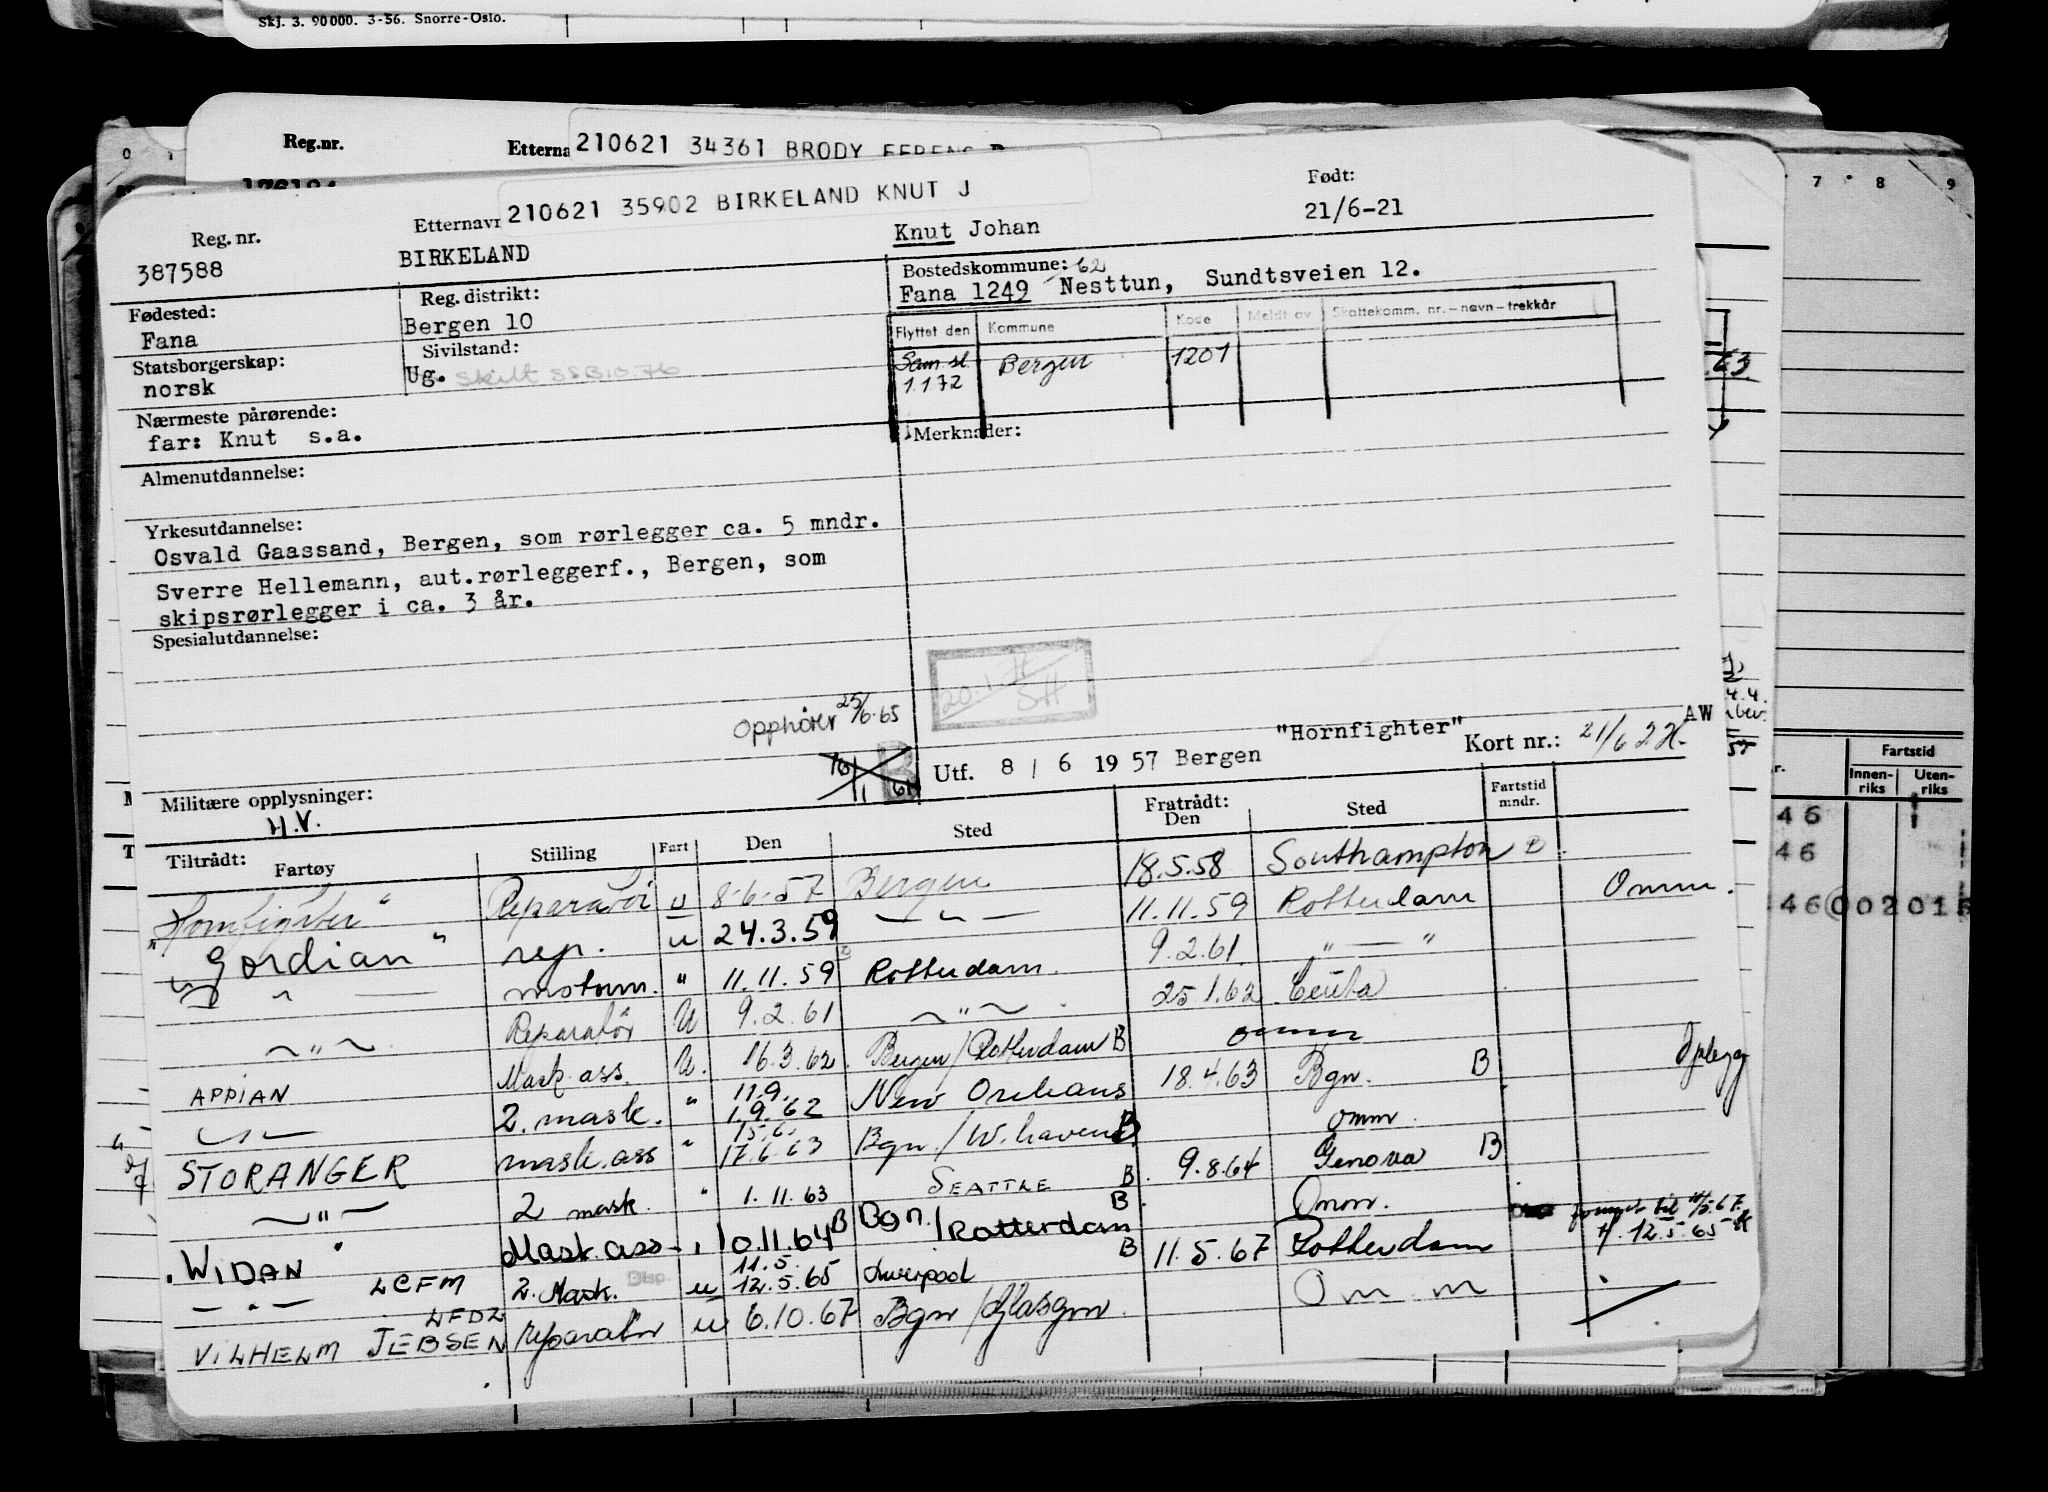 Skj. 3. 90000. 3-56. Snorre-Oslo.
Reg.nr. Etterna 210621 34361 BRODY
Reg. nr. Etternavn 210621 35902 BIRKELAND KNUT J Født:
387588 BIRKELAND Knut Johan 21/6-21
Fødested: Reg. distrikt: Bostedskommune: 62
Fana Bergen 10 Fana 1249 Nesttun, Sundtsveien 12.
Statsborgerskap: Sivilstand: Flyttet den Kommune Kode Meldt av Skattekomm. nr. – navn – trekkår
norsk Ug. Skilt Sam.sl. Bergen 1201
1.1 72
Nærmeste pårørende:
far: Knut s.a. Merknader:
Almenutdannelse:
Yrkesutdannelse:
Osvald Gaassand, Bergen, som rørlegger ca. 5 mndr.
Sverre Hellemann, aut.rørleggerf., Bergen, som
skipsrørlegger i ca. 3 år.
Spesialutdannelse:
Opphører 25/6.65
Utf. 8 / 6 19 57 Bergen "Hornfighter" Kort nr.: 21/6 22 AW
Militære opplysninger:
H.V.
Tiltrådt: Fartøy Stilling Fart Den Sted Fratrådt: Den Sted Fartstid mndr.
"Hornfighter" Reparatør u 8-6-57 Bergen 18.5.58 Southampton
"Gordian" rep. u 24.3.59 — " — 11.11.59 Rotterdam Omm.
— " — motorm. " 11.11.59 Rotterdam. 9.2.61. " — "
— " — Reparatør U 9.2.61 — " — 25.1.62 Ceuta
APPIAN Mask.ass. U. 16.3.62 Bergen/Rotterdam B omm
— " — 2. mask. " 11.9. 1.9.62 New Orleans 18.4.63 Bgn. B Oplegg
STORANGER mask.ass " 15.6. 17.6.63 Bgn./W.haven B omm.
— " — 2 mask. " 1.11.63 SEATTLE B 9.8.64 Genova B
"WIDAN" Mask.ass. " 10.11.64 B Bgn./Rotterdam B Omm.
— " — LCFM 2. Mask. Disp. u 11.5. 12.5.65 Liverpool B 11.5.67 Rotterdam 12.5.65
LFDZ
VILHELM JEBSEN reparatør u 6.10.67 Bgn/Glasgow Omm
7 8 9
Fartstid
Innen-riks Uten-riks
46
46
46 002 01